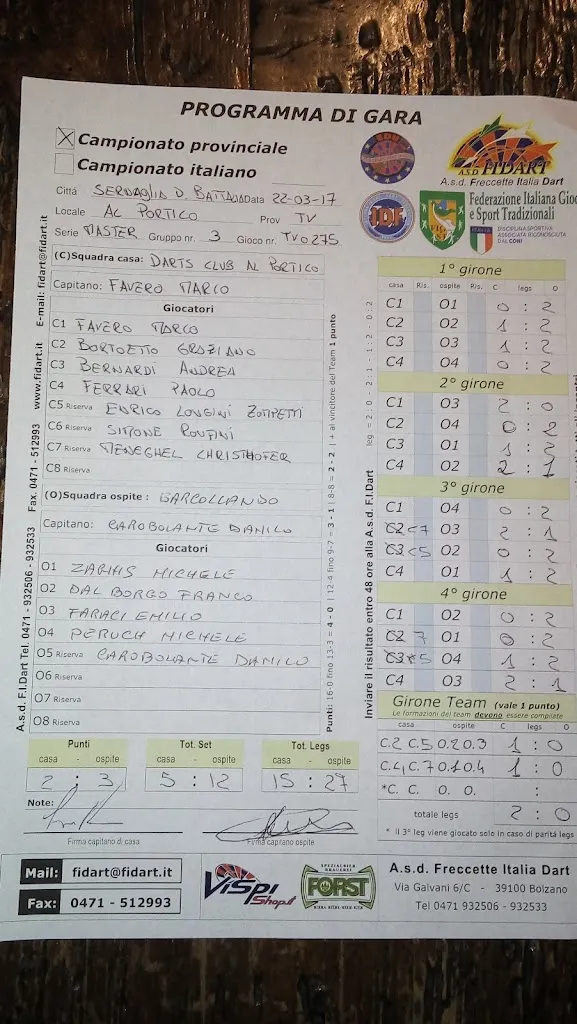 PROGRAMMA DI GARA
X Campionato provinciale
Campionato italiano
Città SERNAGLIA D. BATTAGLIA Data 22-03-17
Locale AL PORTICO Prov TV
Serie MASTER Gruppo nr. 3 Gioco nr. TV0275
A.S.D. FIDART
A.s.d. Freccette Italia Dart
IDF
Federazione Italiana Gioc
e Sport Tradizionali
ITALIA
DISCIPLINA SPORTIVA
ASSOCIATA RICONOSCIUTA
DAL CONI
(C)Squadra casa: DARTS CLUB AL PORTICO
Capitano: FAVERO MARCO
Giocatori
C1 FAVERO MARCO
C2 BORTOETTO GRAZIANO
C3 BERNARDI ANDREA
C4 FERRARI PAOLO
C5 Riserva ENRICO LONGINI ZOMPETTI
C6 Riserva SIMONE ROUFINI
C7 Riserva MENEGHEL CHRISTHOFER
C8 Riserva
(O)Squadra ospite: BARCOLLANDO
Capitano: CAROBOLANTE DANILO
Giocatori
O1 ZARHIS MICHELE
O2 DAL BORGO FRANCO
O3 FARACI EMILIO
O4 PERUCH MICHELE
O5 Riserva CAROBOLANTE DANILO
O6 Riserva
O7 Riserva
O8 Riserva
Punti
casa - ospite
2 : 3
Tot. Set
casa - ospite
5 : 12
Tot. Legs
casa - ospite
15 : 27
Note:
Firma capitano di casa
Firma capitano ospite
A.s.d. F.I.Dart Tel. 0471 - 932506 - 932533 Fax. 0471 - 512993 www.fidart.it E-mail: fidart@fidart.it
Punti: 16-0 fino 13-3 = 4 - 0 | 12-4 fino 9-7 = 3 - 1 | 8-8 = 2 - 2 | + al vincitore del Team 1 punto
Inviare il risultato entro 48 ore alla A.s.d. F.I.Dart leg = 2:0 - 2:1 - 1:2 - 0:2
1° girone
casa Ris. ospite Ris. C legs O
C1 O1 0 : 2
C2 O2 1 : 2
C3 O3 1 : 2
C4 O4 0 : 2
2° girone
C1 O3 2 : 0
C2 O4 0 : 2
C3 O1 1 : 2
C4 O2 2 : 1
3° girone
C1 O4 0 : 2
C2 C7 O3 2 : 1
C3 C5 O2 0 : 2
C4 O1 1 : 2
4° girone
C1 O2 0 : 2
C2 7 O1 0 : 2
C3 5 O4 1 : 2
C4 O3 2 : 1
Girone Team (vale 1 punto)
Le formazioni del team devono essere compilate
casa ospite C legs O
C.2 C.5 O.2 O.3 1 : 0
C.4 C.7 O.1 O.4 1 : 0
*C. C. O. O. :
totale legs 2 : 0
* Il 3° leg viene giocato solo in caso di parità legs
Mail: fidart@fidart.it
Fax: 0471 - 512993
VISPI
Shop.it
SPEZIALBIER
BRAUEREI
FORST
A.s.d. Freccette Italia Dart
Via Galvani 6/C - 39100 Bolzano
Tel 0471 932506 - 932533